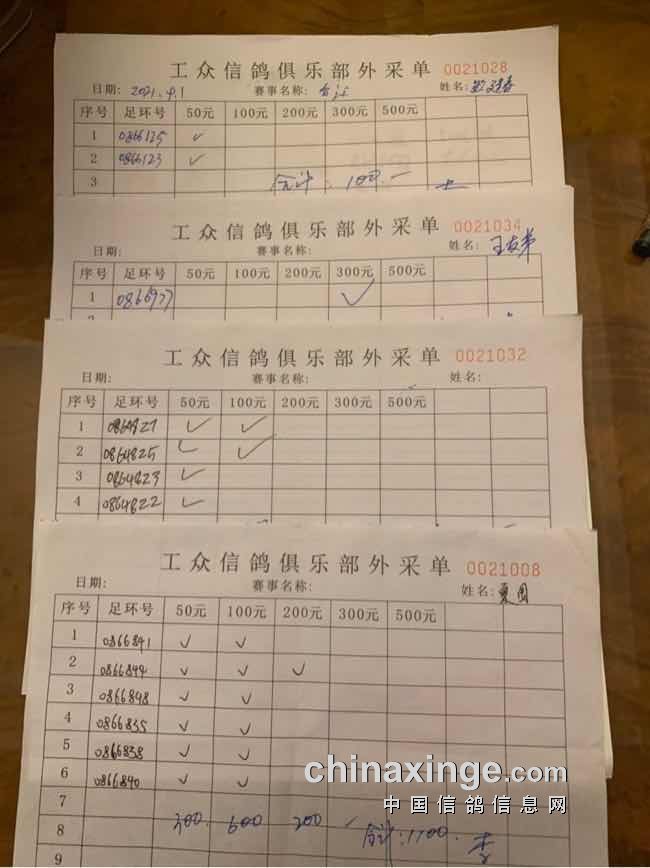 工众信鸽俱乐部外采单 0021028
日期: 2021.4.1 赛事名称: 姓名:
序号 足环号 50元 100元 200元 300元 500元
1 0866125 ✓
2 0866123 ✓
3
合计: 100.一
工众信鸽俱乐部外采单 0021034
日期: 赛事名称: 姓名:
序号 足环号 50元 100元 200元 300元 500元
1 0866977 ✓
工众信鸽俱乐部外采单 0021032
日期: 赛事名称: 姓名:
序号 足环号 50元 100元 200元 300元 500元
1 0864827 ✓ ✓
2 0864825 ✓ ✓
3 0864823 ✓
4 0864822 ✓
工众信鸽俱乐部外采单 0021008
日期: 赛事名称: 姓名:
序号 足环号 50元 100元 200元 300元 500元
1 0866841 ✓ ✓
2 0866844 ✓ ✓ ✓
3 0866848 ✓ ✓
4 0866835 ✓ ✓
5 0866838 ✓ ✓
6 0866840 ✓ ✓
7
300. 600 200
8 合计:1100.
9
chinaxinge.com
中国信鸽信息网